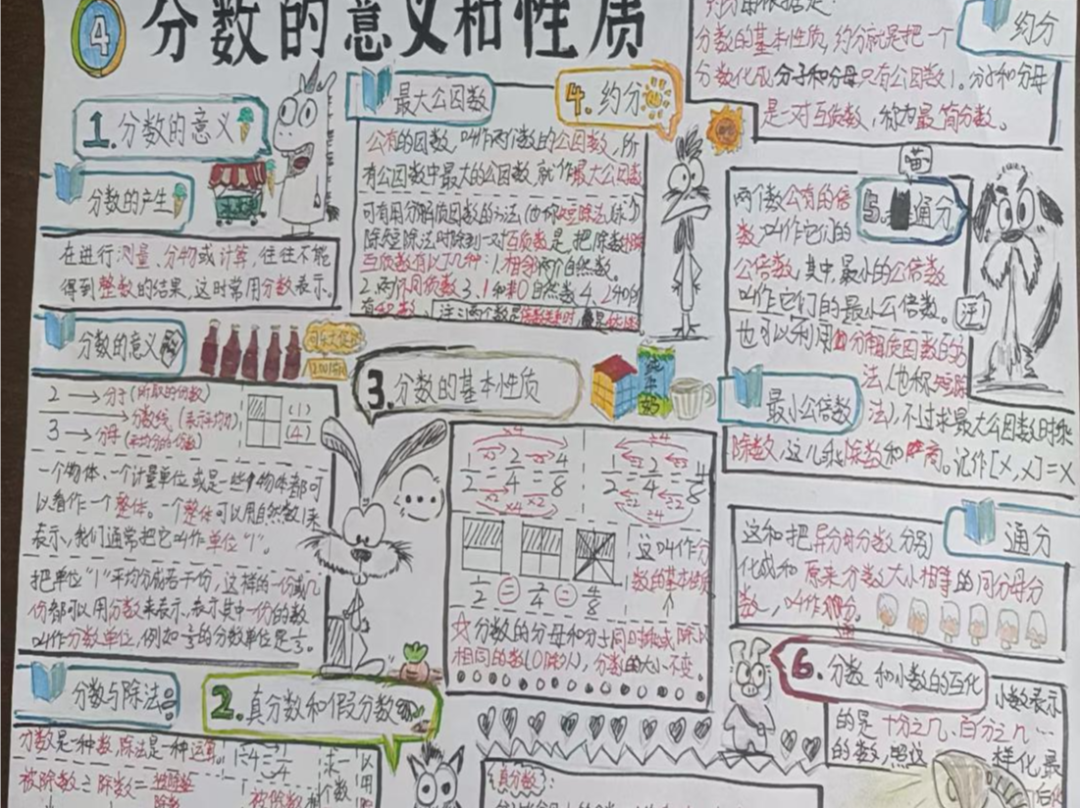 4 分数的意义和性质
1. 分数的意义
分数的产生
在进行测量、分物或计算,往往不能
得到整数的结果,这时常用分数表示.
分数的意义
2 → 分子(所取的份数)
→ 分数线(表示平均分)
3 → 分母(平均分的份数)
(1)
(4)
一个物体、一个计量单位或是一些物体都可
以看作一个整体。一个整体可以用自然数1来
表示,我们通常把它叫作单位"1"。
把单位"1"平均分成若干份,这样的一份或几
份都可以用分数来表示.表示其中一份的数
叫作分数单位,例如
的分数单位是
分数与除法
分数是一种数,除法是一种运算
被除数÷除数=被除数
除数
2. 真分数和假分数
求一
最大公因数
4. 约分
公有的因数,叫作两个数的公因数,所
有公因数中最大的公因数,就叫作最大公因数
可有用分解质因数的方法(也称短除法
互质数有以下几种:1.相邻两个自然数。
3. 1和非0自然数
3. 分数的基本性质
1/2=2/4=4/8
1/2=2/4=4/8
1/2 = 2/4 = 4/8
这叫作分
数的基本性质
☆分数的分母和分子同时乘或除以
相同的数(0除外),分数的大小不变。
真分数:
约分
分数的基本性质,约分就是把一个
分数化成分子和分母只有公因数1。分子和分母
是一对互质数,称为最简分数。
喵
5. 通分
汪!
两个数公有的倍
数,叫作它们的
公倍数,其中最小的公倍数
叫作它们的最小公倍数。
也可以利用分解质因数的方
法(也称短除
法),不过求最大公因数时乘
除数,这儿乘除数和商。记作[X,X]=X
最小公倍数
通分
这和把异分母分数分别
化成和原来分数大小相等的同分母分
数,叫作通分。
6. 分数和小数的互化
小数表示
的是十分之几、百分之几…
的数,照这
样化,最